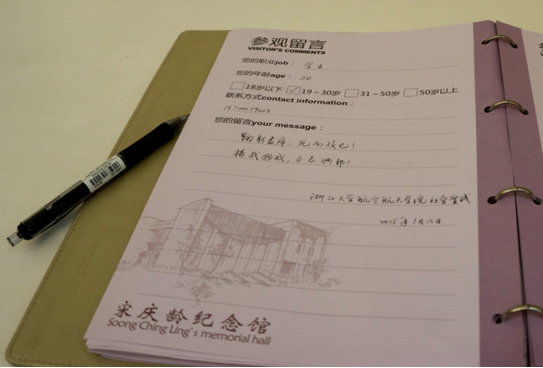 参观留言
VISITOR'S COMMENTS
您的职业job： 学生
您的年龄age： 20
18岁以下 ✓19～30岁 31～50岁 50岁以上
联系方式contact information：
您的留言your message：
鞠躬尽瘁，死而后已！
扬我国威，立志
浙江大学航空航天学院社会实践
2015年7月
宋庆龄纪念馆
Soong Ching Ling's memorial hall